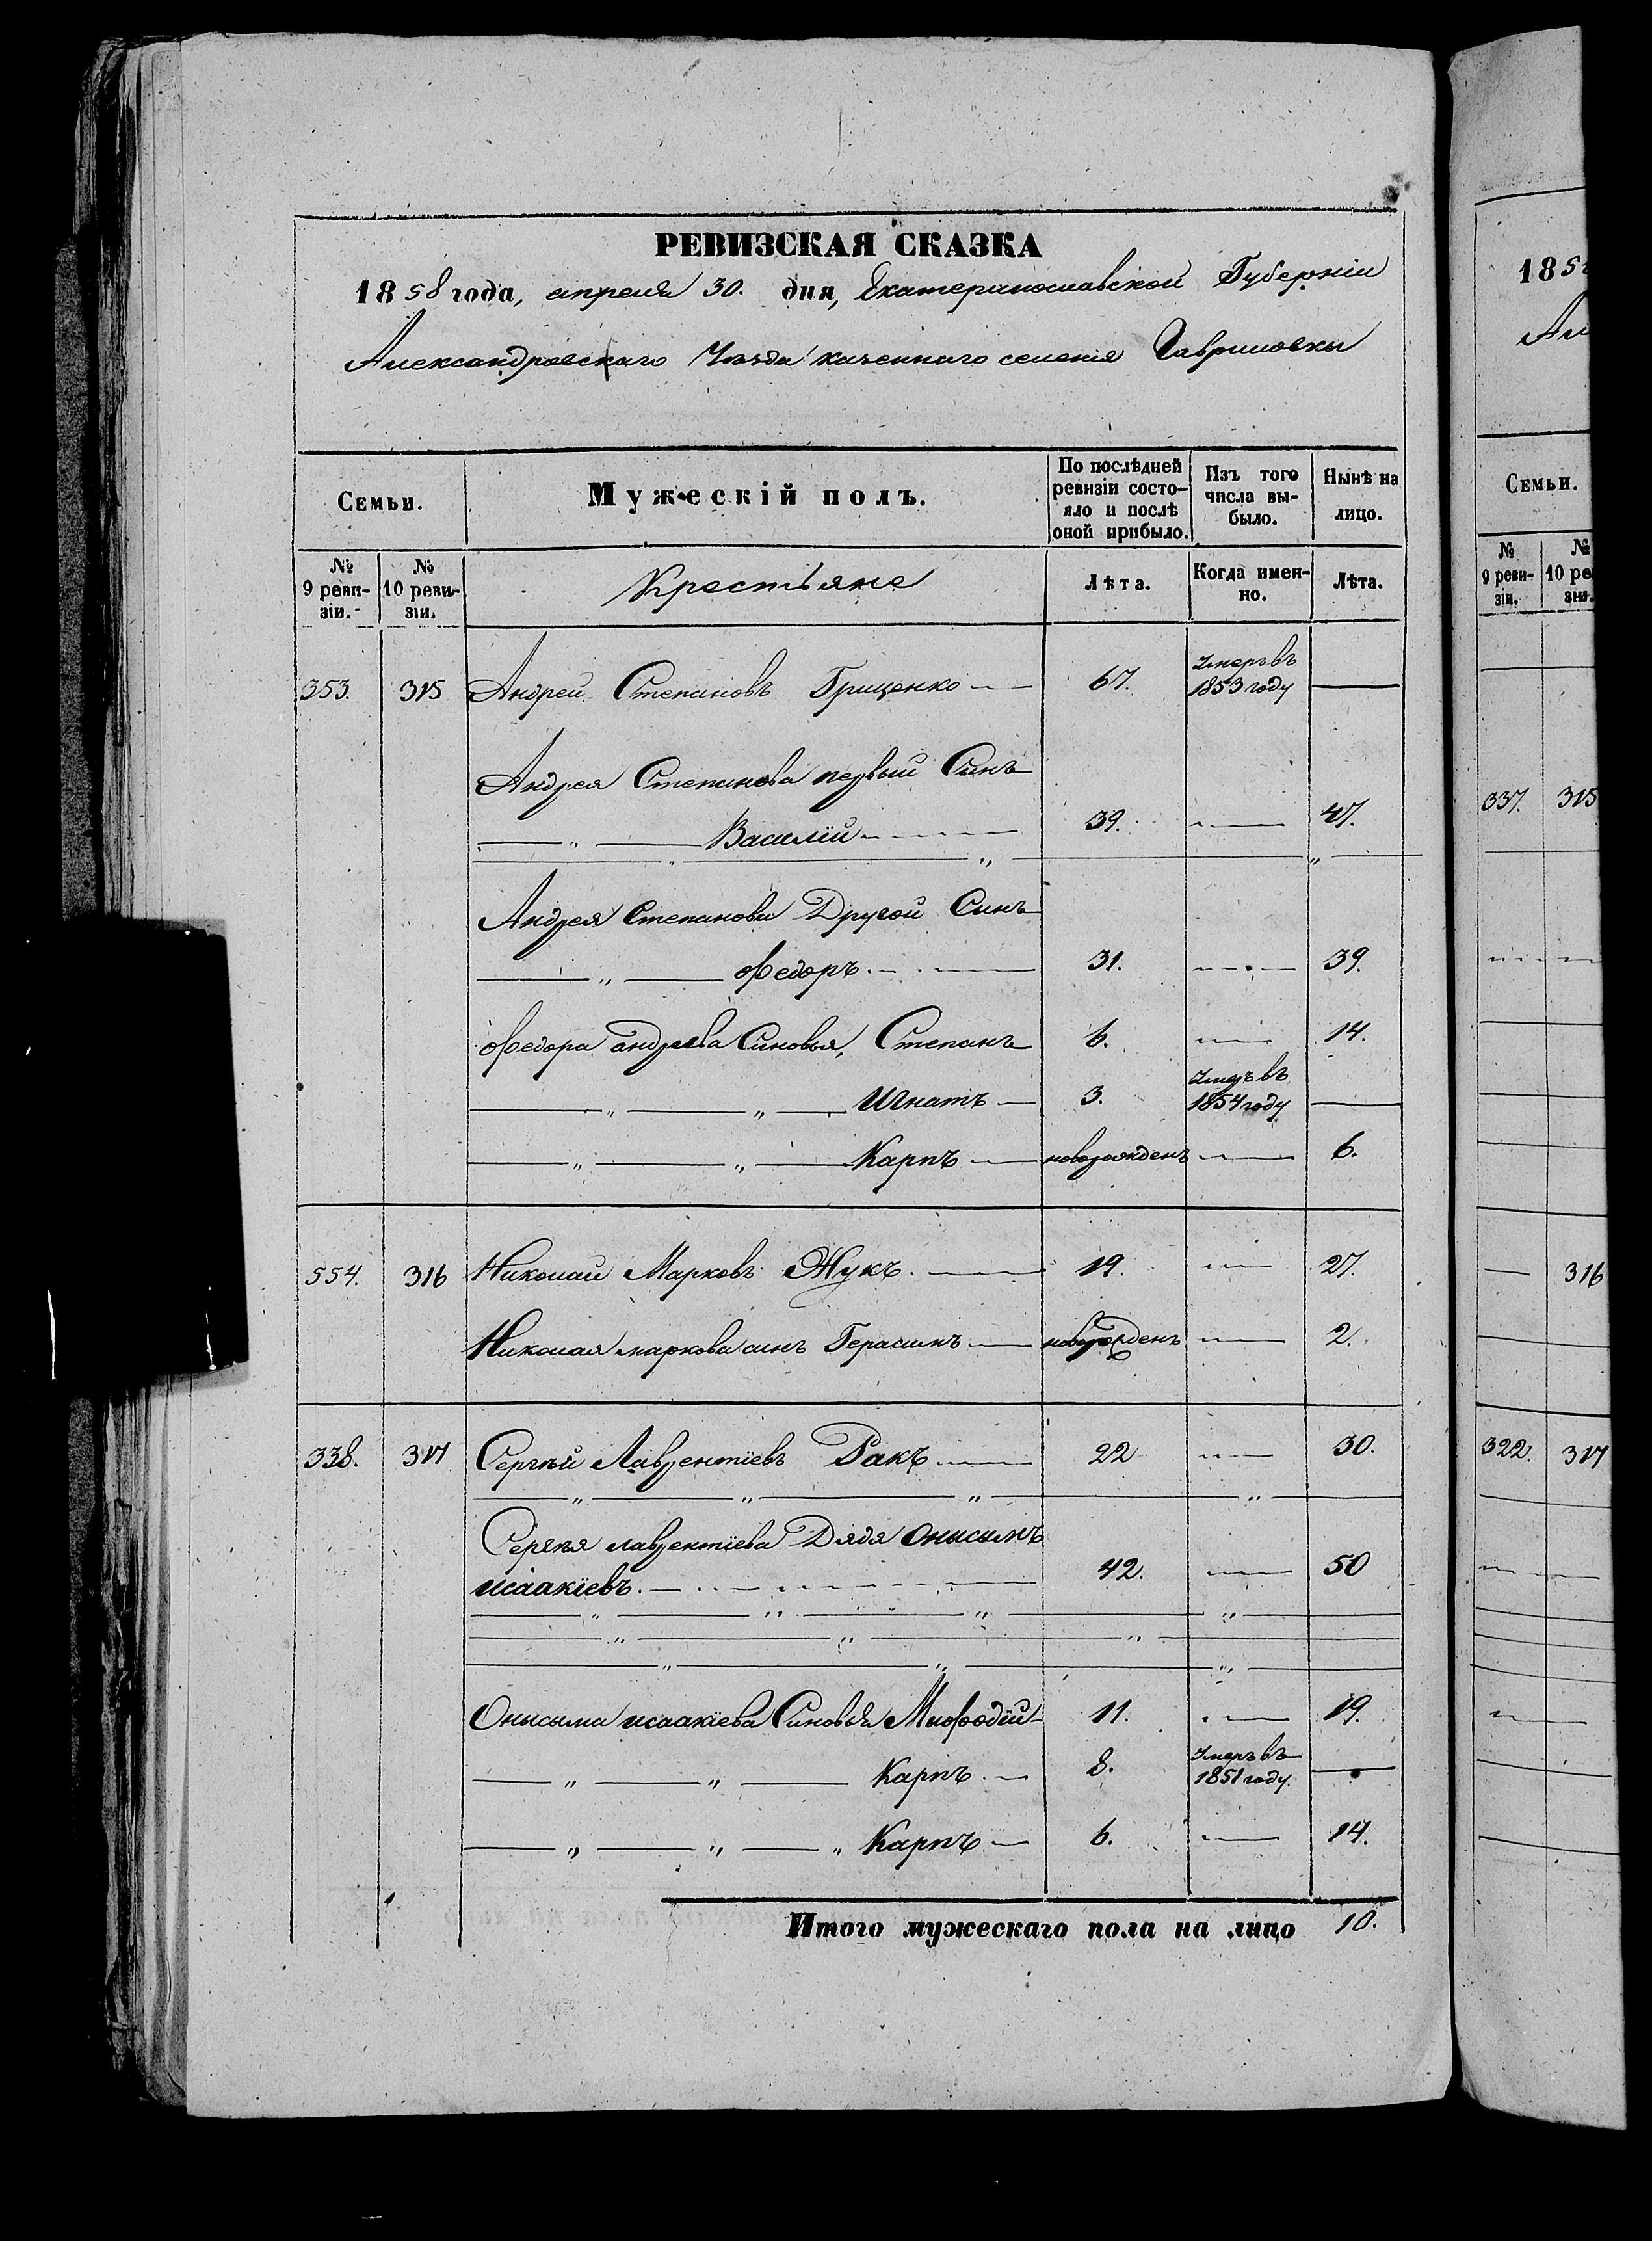 РЕВИЗСКАЯ СКАЗКА
1858 года, апреля 30. дня, Екатеринославской Губерніи
Александровскаго Уѣзда казеннаго селенія Гавриловки
Семьи.
Мужескій полъ.
По послѣдней ревизіи состояло и послѣ оной прибыло.
Изъ того числа выбыло.
Нынѣ на лицо.
№ 9 ревизіи.
№ 10 ревизіи.
Крестьяне
Лѣта.
Когда именно.
Лѣта.
353. 315 Андрей Степановъ Гриценко 67. Умеръ въ 1853 году
Андрея Степанова первый Синъ
Василій 39. 47.
Андрея Степанова Другой Синъ
Федоръ 31. 39.
Федора андреева Синовья, Степанъ 6. 14.
Игнатъ 3. Умеръ въ 1854 году
Карпъ новорожденъ 6.
554. 316 Николай Марковъ Жукъ 19. 27.
Николая маркова синъ Герасимъ новорожденъ 2.
338. 317 Сергѣй Лаврентіевъ Ракъ 22 30.
Сергѣя лаврентіева Дядя Онысымъ
исаакіевъ. 42. 50
Онысыма исаакіева Синовья Мыфодій 11. 19.
Карпъ 8. Умеръ въ 1851 году.
Карпъ 6. 14.
Итого мужескаго пола на лицо 10.
185
Ал
Семьи.
№ 9 ревизіи.
№ 10 ре
зіи.
337. 315
316
322. 317